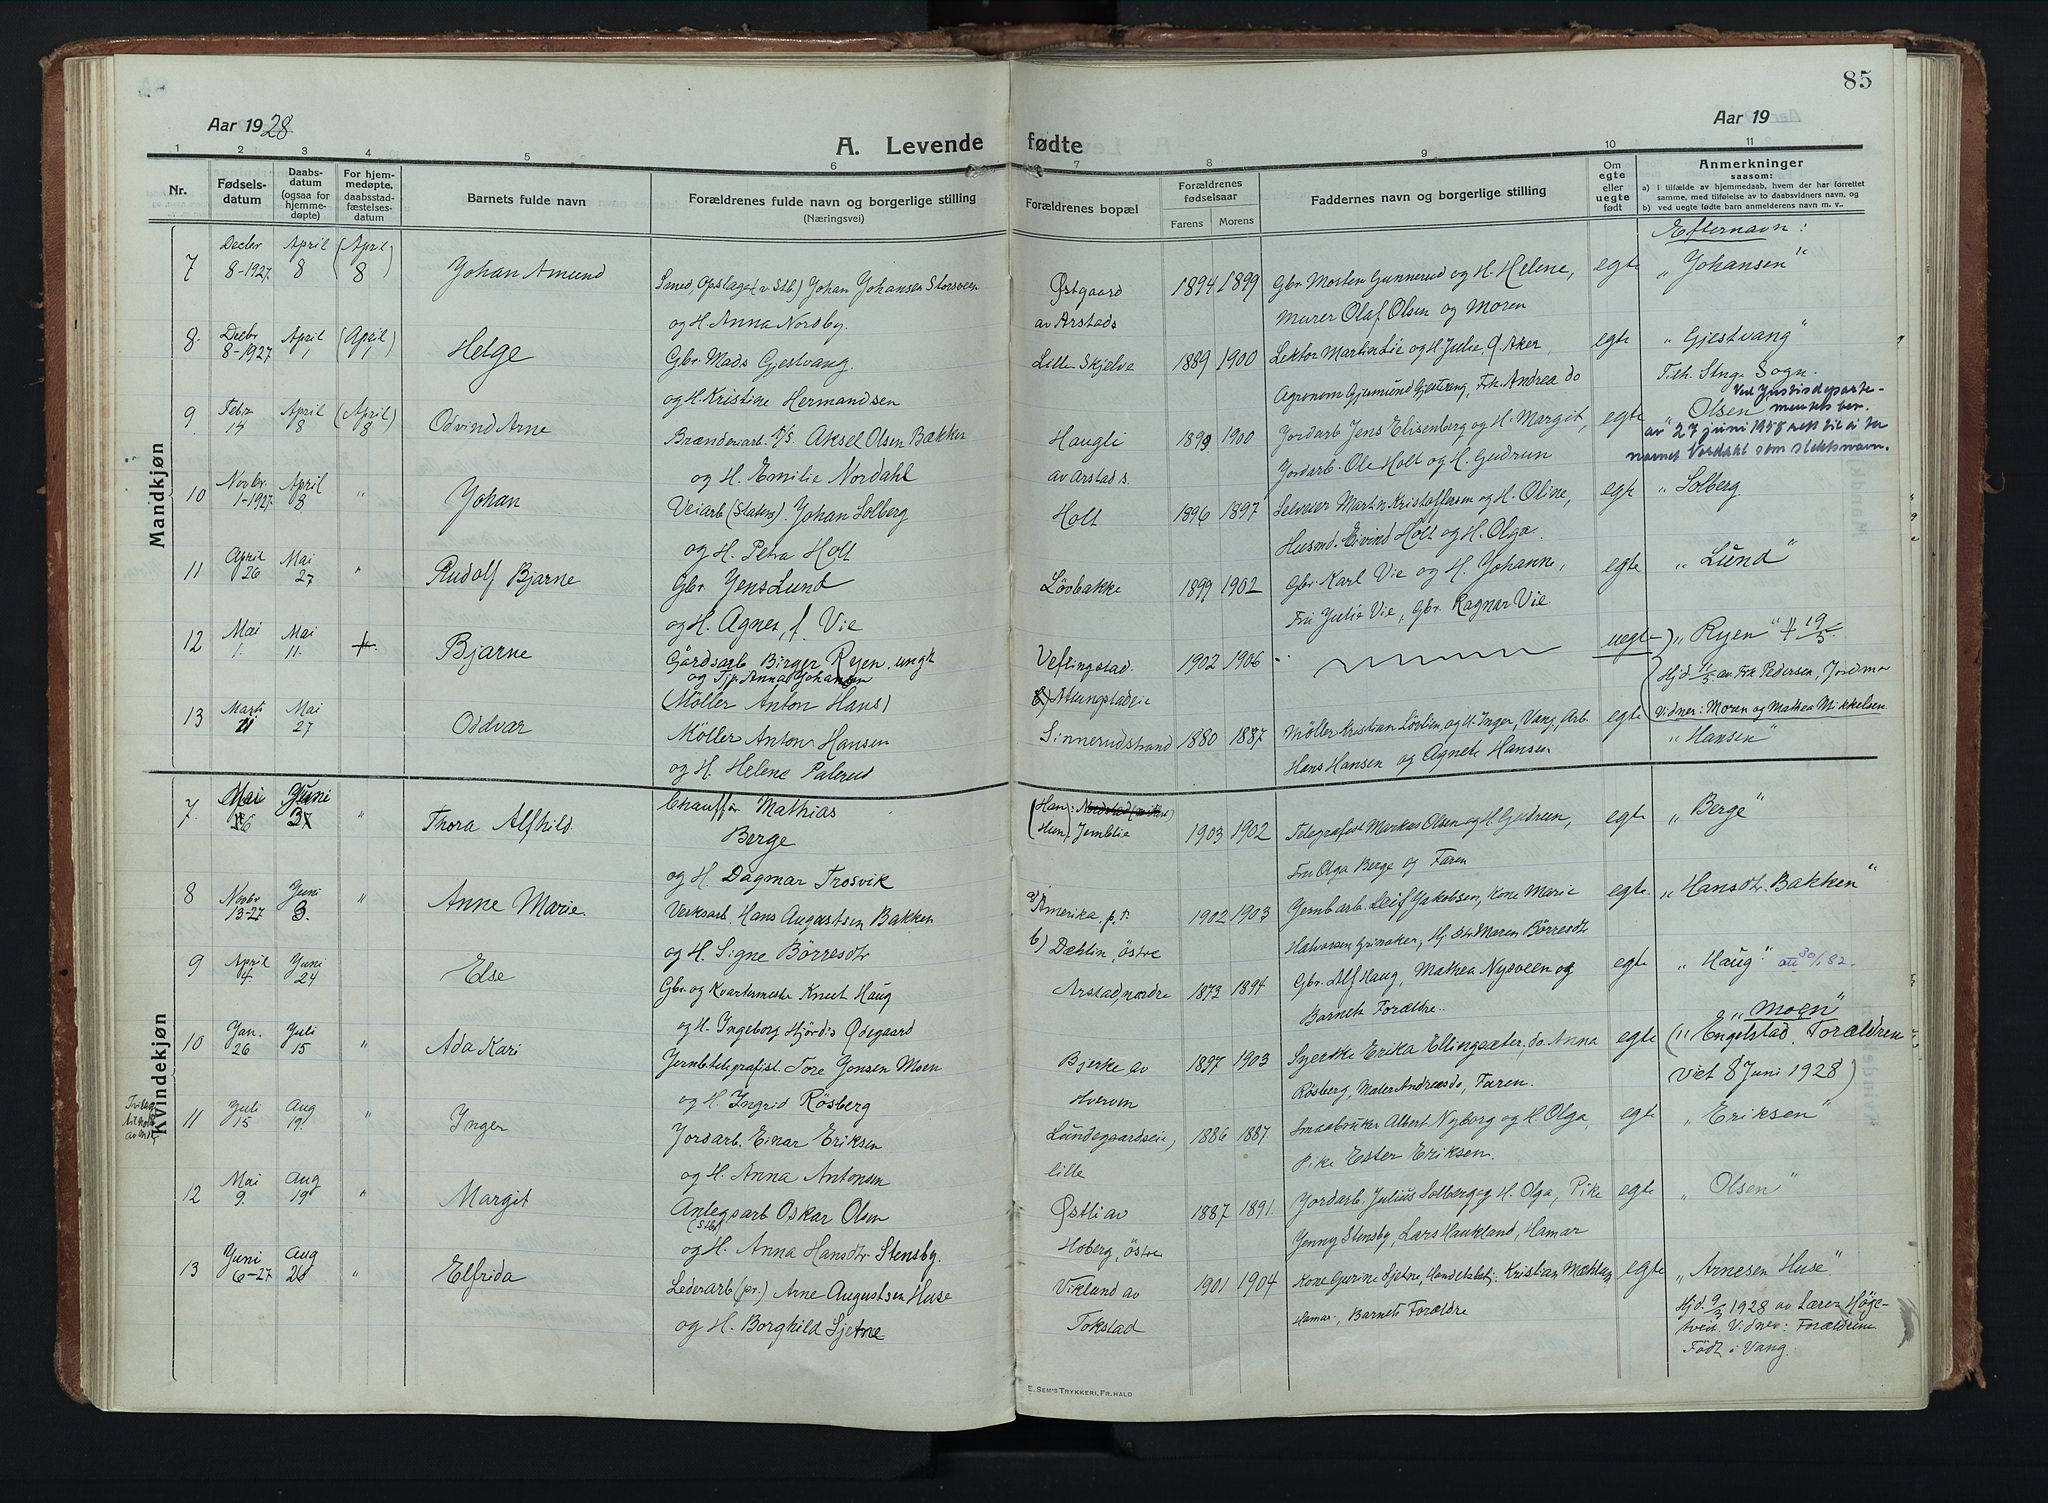 85
Aar 1928
Aar 19
A. Levende fødte
1 2 3 4 5 6 7 8 9 10 11
Nr.
Fødsels-
datum
Daabs-
datum
(ogsaa for
hjemme-
døpte)
For hjem-
medøpte,
daabsstad-
fæstelses-
datum
Barnets fulde navn
Forældrenes fulde navn og borgerlige stilling
(Næringsvei)
Forældrenes bopæl
Forældrenes
fødselsaar
Farens Morens
Faddernes navn og borgerlige stilling
Om
egte
eller
uegte
født
Anmerkninger
saasom:
a) I tilfælde av hjemmedaab, hvem der har forrettet
samme, med tilføielse av to daabsvidners navn, og
b) ved uegte fødte barn anmelderens navn m. v..
Mandkjøn
Efternavn:
7 Decbr 8-1927. April 8 (April 8) Johan Amund
Smed, Opslaget (v Stb.) Johan Johansen Storsveen
og H. Anna Nordby.
Østgaard
av Arstads
1894 1899
Gbr. Morten Gunnerud og H. Helene,
Murer Olaf Olsen og Moren
egte
"Johansen"
8. Decbr 8-1927 April 1 (April 1) Helge
Gbr. Mads Gjestvang.
og H. Kristine Hermandsen
Lille Skjelve
1889 1900
Lektor Martin Lie og H. Julie, Ø. Aker,
Agronom Gjermund Gjestvang, Frk. Andrea do
egte
"Gjestvang"
Tilh. Stange Sogn.
9 Febr 14 April 8 (April 8) Odvind Arne
Brænderiarb. Aksel Olsen Bakken
og H. Emilie Nordahl
Haugli
av Arstads.
1899 1900
Jordarb Jens Elisenberg og H. Margit,
Jordarb. Ole Holt og H. Gudrun
egte
"Olsen Ved Justisdeparte-
mentets bev.
av 27 juni 1958 rett til å ta
navnet Nordahl som slektsnavn.
10 Novbr. 1-1927. April 8 " Johan
Veiarb (Statens). Johan Solberg
og H. Petra Holt
Holt
1896 1897
Selveier Martin Kristoffersen og H. Oline,
Husmd. Eivind Holt og H. Olga.
egte
"Solberg
11 April 26 Mai 27 " Rudolf Bjarne
Gbr Jens Lund
og H. Agnes, f. Vie
Løvbakke
1899 1902
Gbr. Karl Vie og H. Johanne,
Fru Julie Vie, Gbr. Ragnar Vie.
egte
"Lund"
12 Mai 1. Mai 11. +. Bjarne
Gårdsarb Birger Ryen, ungk
og Tjp. Anna Johansen
Veflingstad.
1902 1906
uegte
"Ryen" + 19/5.
Hjd. 11/5 av Frk Pedersen, Jordmor
Vidner: Moren og Mathea Mikkelsen.
13 Marts 11 Mai 27 Oddvar
(Møller Anton Hans)
Møller Anton Hansen
og H. Helene Palerud
Sinnerudstrand
1880 1887
Møller Kristian Løvlien og H. Inger, Vang, Arb.
Hans Hansen og Agnete Hansen
egte
"Hansen"
Kvindekjøn
7 Mai 16 Juni 3 " Thora Alfhild.
Chauffør Mathias
Berge
og H. Dagmar Trosvik
(Han):
Hun) Jemblie
1903 1902
Telegrafist Markus Olsen og H. Gudrun,
Fru Olga Berge og Faren
egte
"Berge"
8 Novbr 13-27 Juni 3. " Anne Marie.
Verksarb. Hans Augustsen Bakken
og H. Signe Børresdtr
a) Amerika p.t.
b) Dæhlin, østre
1902 1903
Jernbarb. Leif Jakobsen, Kone Marie
Halvorsen Grinaker, Hj.dtr Maren Børresdtr
egte.
"Hansdtr. Bakken"
9 April 4. Juni 24 " Else
Gbr og Kvartermester Knut Haug
og H. Ingeborg Hjørdis Ødegaard
Arstad, nordre
1873 1894
Gbr. Alf Haug, Mathea Nysveen og
Barnets Forældre..
egte
"Haug" 30/1 82.
10 Jan. 26 Juli 15 " Ada Kari
Jernbtelegrafist. Tore Jonsen Moen
og H. Ingrid Røsberg
Bjerke av
Hverven
1897 1903
Syerske Erika Ellingsæter, do. Anna
Røsberg, Maler Andreas do, Faren.
egte
"Moen"
("Engelstad. Forældren
viet 8 Juni 1928)
11 Juli 15 Aug 19. " Inger
Jordarb. Einar Eriksen
og H. Anna Antonsen
Lundegaardseie,
lille
1886 1887
Smaabruker Albert Nyborg og H. Olga,
Pike Ester Eriksen.
egte
"Eriksen"
12 Mai 9. Aug 19 " Margit
Anlegsarb Oskar Olsen
(Stb.)
og H. Anna Hansdtr. Stensby.
Østli av
Hoberg, østre
1887 1891.
Jordarb. Julius Solberg og H. Olga, Pike
Jenny Stensby, Lars Haukland, Hamar
egte
"Olsen"
13 Juni 6-27 Aug 26 " Elfrida
Lederarb (pr.) Arne Augustsen Huse
og H. Borghild Sjetne
Viklund av
Tokstad
1901 1904
Kone Gurine Sjetne, Handelsbtj. Kristian Mæhlum
Hamar, Barnets Forældre
egte
"Arnesen Huse".
Hjd. 9/3 1928 av Lærer Høge-
tveit. Vidner: Forældrene
Født i Vang.
E. SEM'S TRYKKERI, FR.HALD